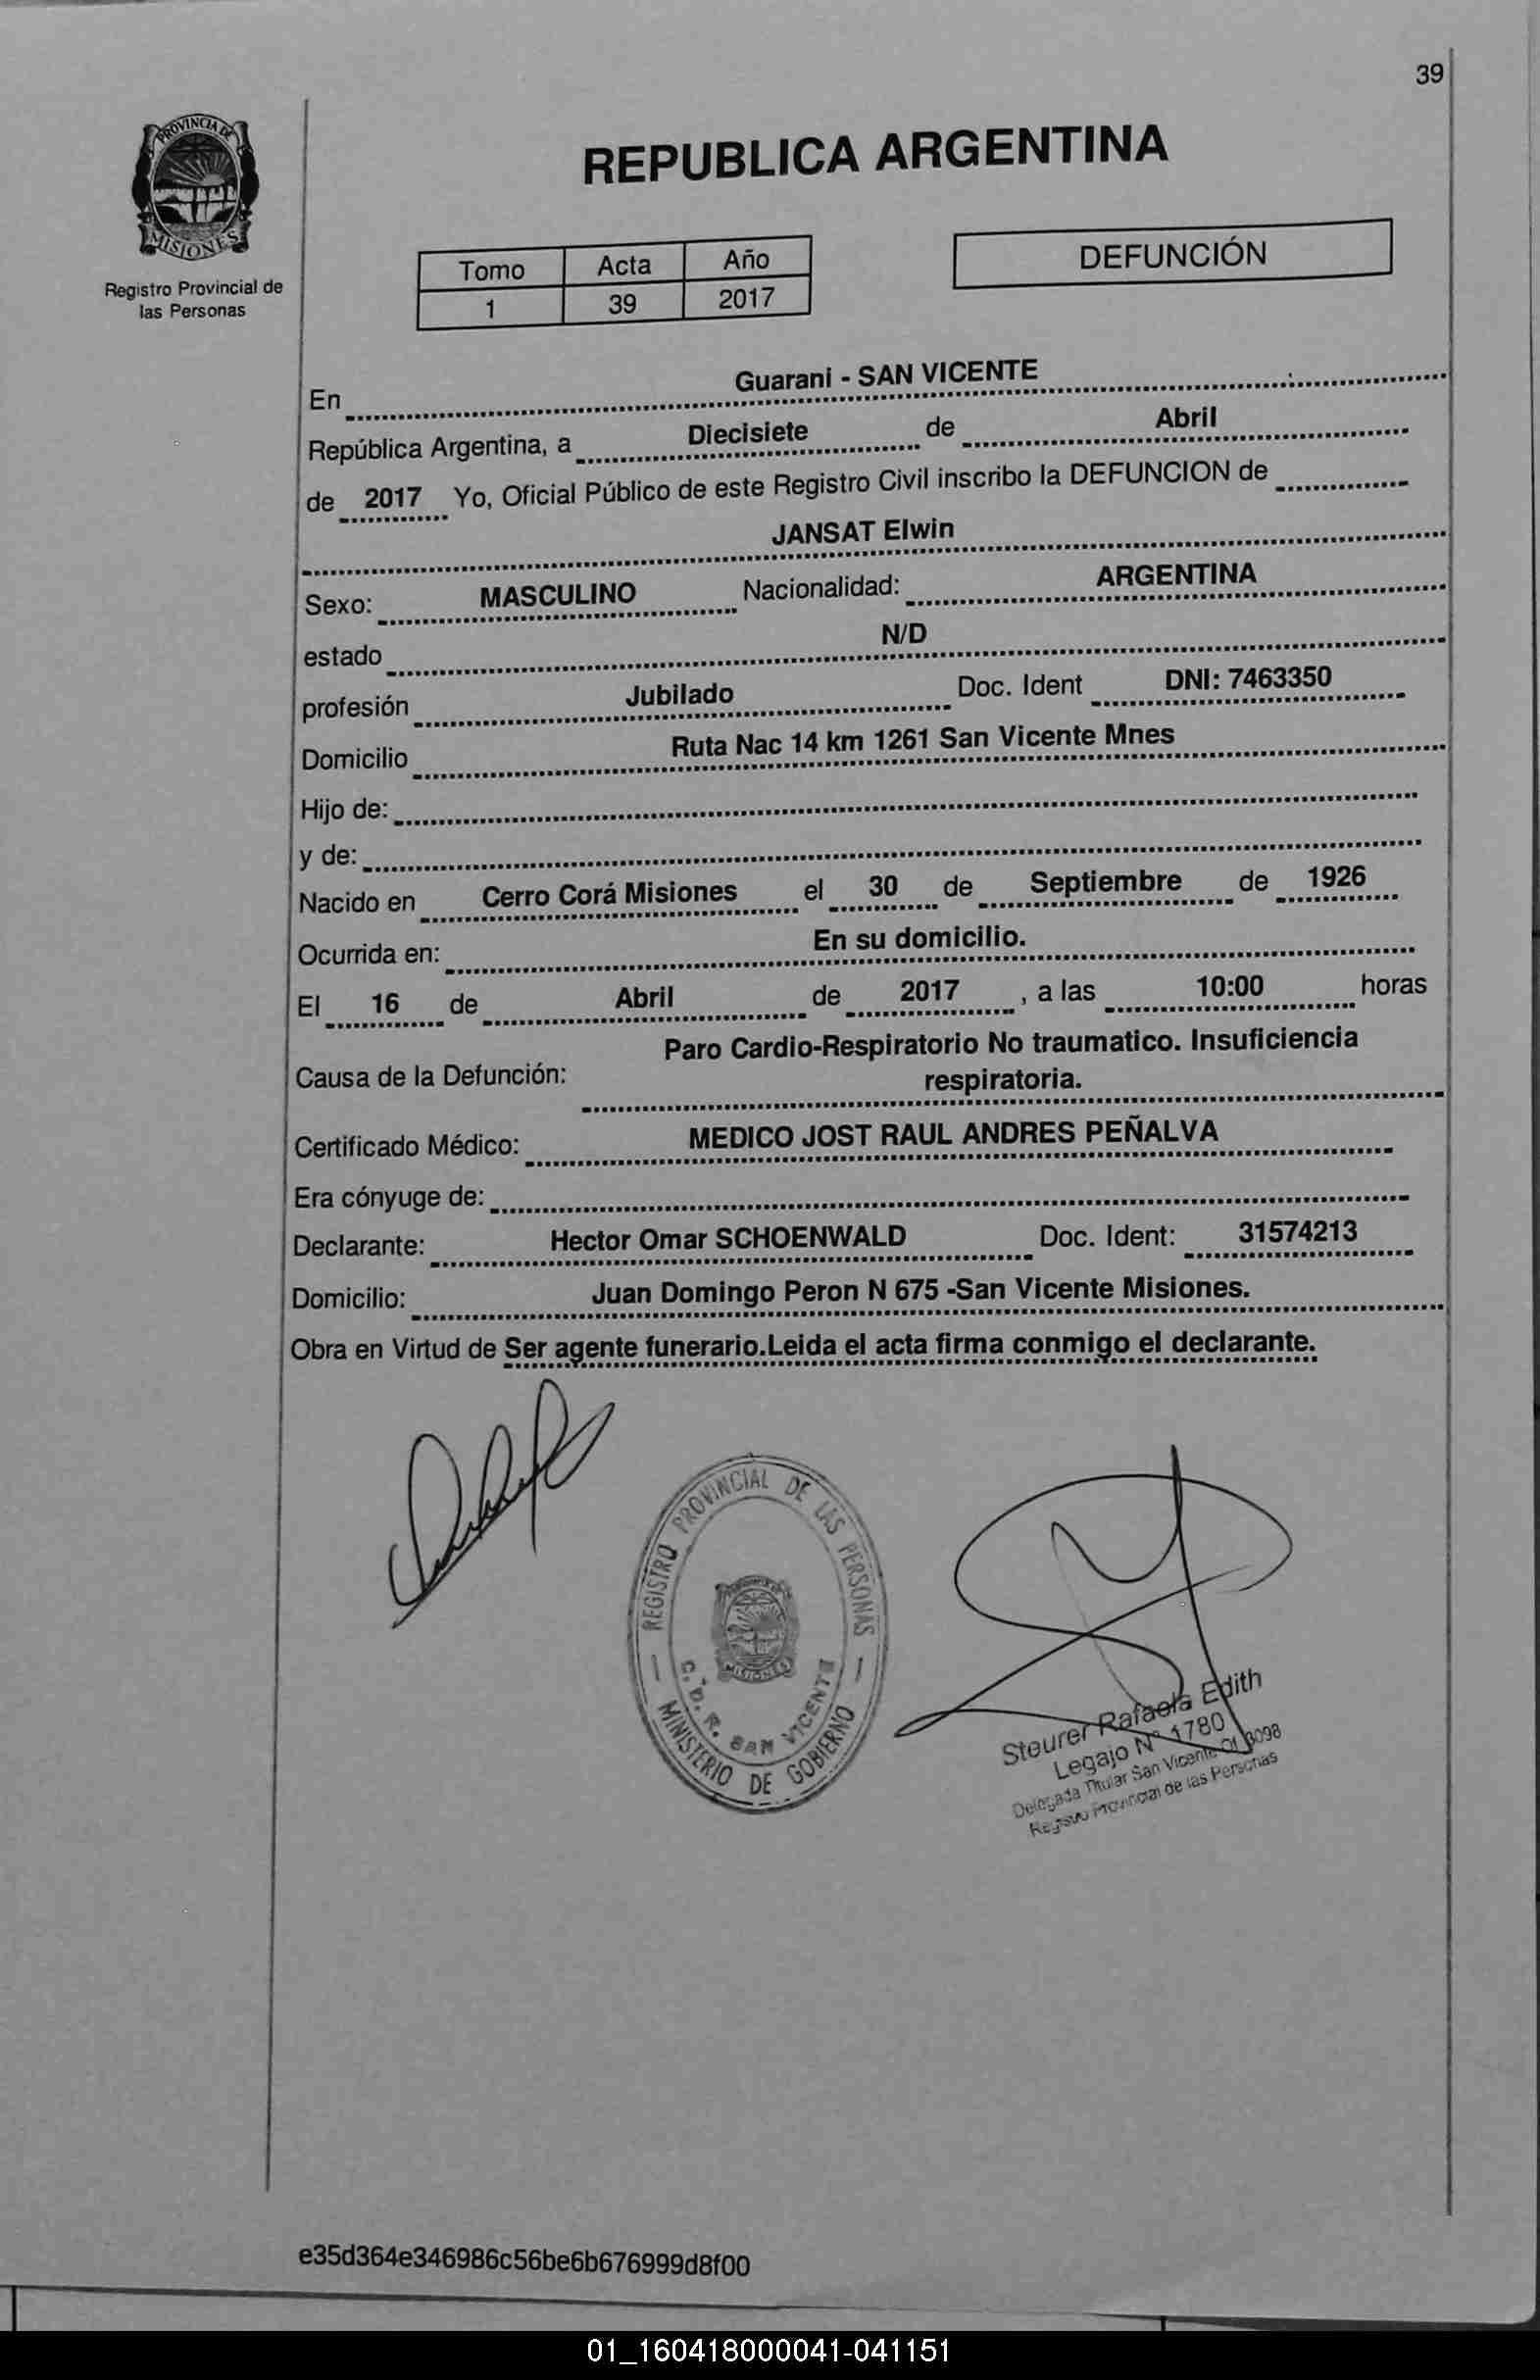 39
PROVINCIA DE
MISIONES
Registro Provincial de
las Personas
REPUBLICA ARGENTINA
Tomo Acta Año
1 39 2017
DEFUNCIÓN
En Guarani - SAN VICENTE
República Argentina, a Diecisiete de Abril
de 2017 Yo, Oficial Público de este Registro Civil inscribo la DEFUNCION de
JANSAT Elwin
Sexo: MASCULINO Nacionalidad: ARGENTINA
estado N/D
profesión Jubilado Doc. Ident DNI: 7463350
Domicilio Ruta Nac 14 km 1261 San Vicente Mnes
Hijo de:
y de:
Nacido en Cerro Corá Misiones el 30 de Septiembre de 1926
Ocurrida en: En su domicilio.
El 16 de Abril de 2017 , a las 10:00 horas
Paro Cardio-Respiratorio No traumatico. Insuficiencia
Causa de la Defunción: respiratoria.
Certificado Médico: MEDICO JOST RAUL ANDRES PEÑALVA
Era cónyuge de:
Declarante: Hector Omar SCHOENWALD Doc. Ident: 31574213
Domicilio: Juan Domingo Peron N 675 -San Vicente Misiones.
Obra en Virtud de Ser agente funerario.Leida el acta firma conmigo el declarante.
REGISTRO PROVINCIAL DE LAS PERSONAS
MISIONES
C. D. R. SAN VICENTE
MINISTERIO DE GOBIERNO
Steurer Rafaela Edith
Legajo N° 1780
Delegada Titular San Vicente
Registro Provincial de las Personas
e35d364e346986c56be6b676999d8f00
01_160418000041-041151